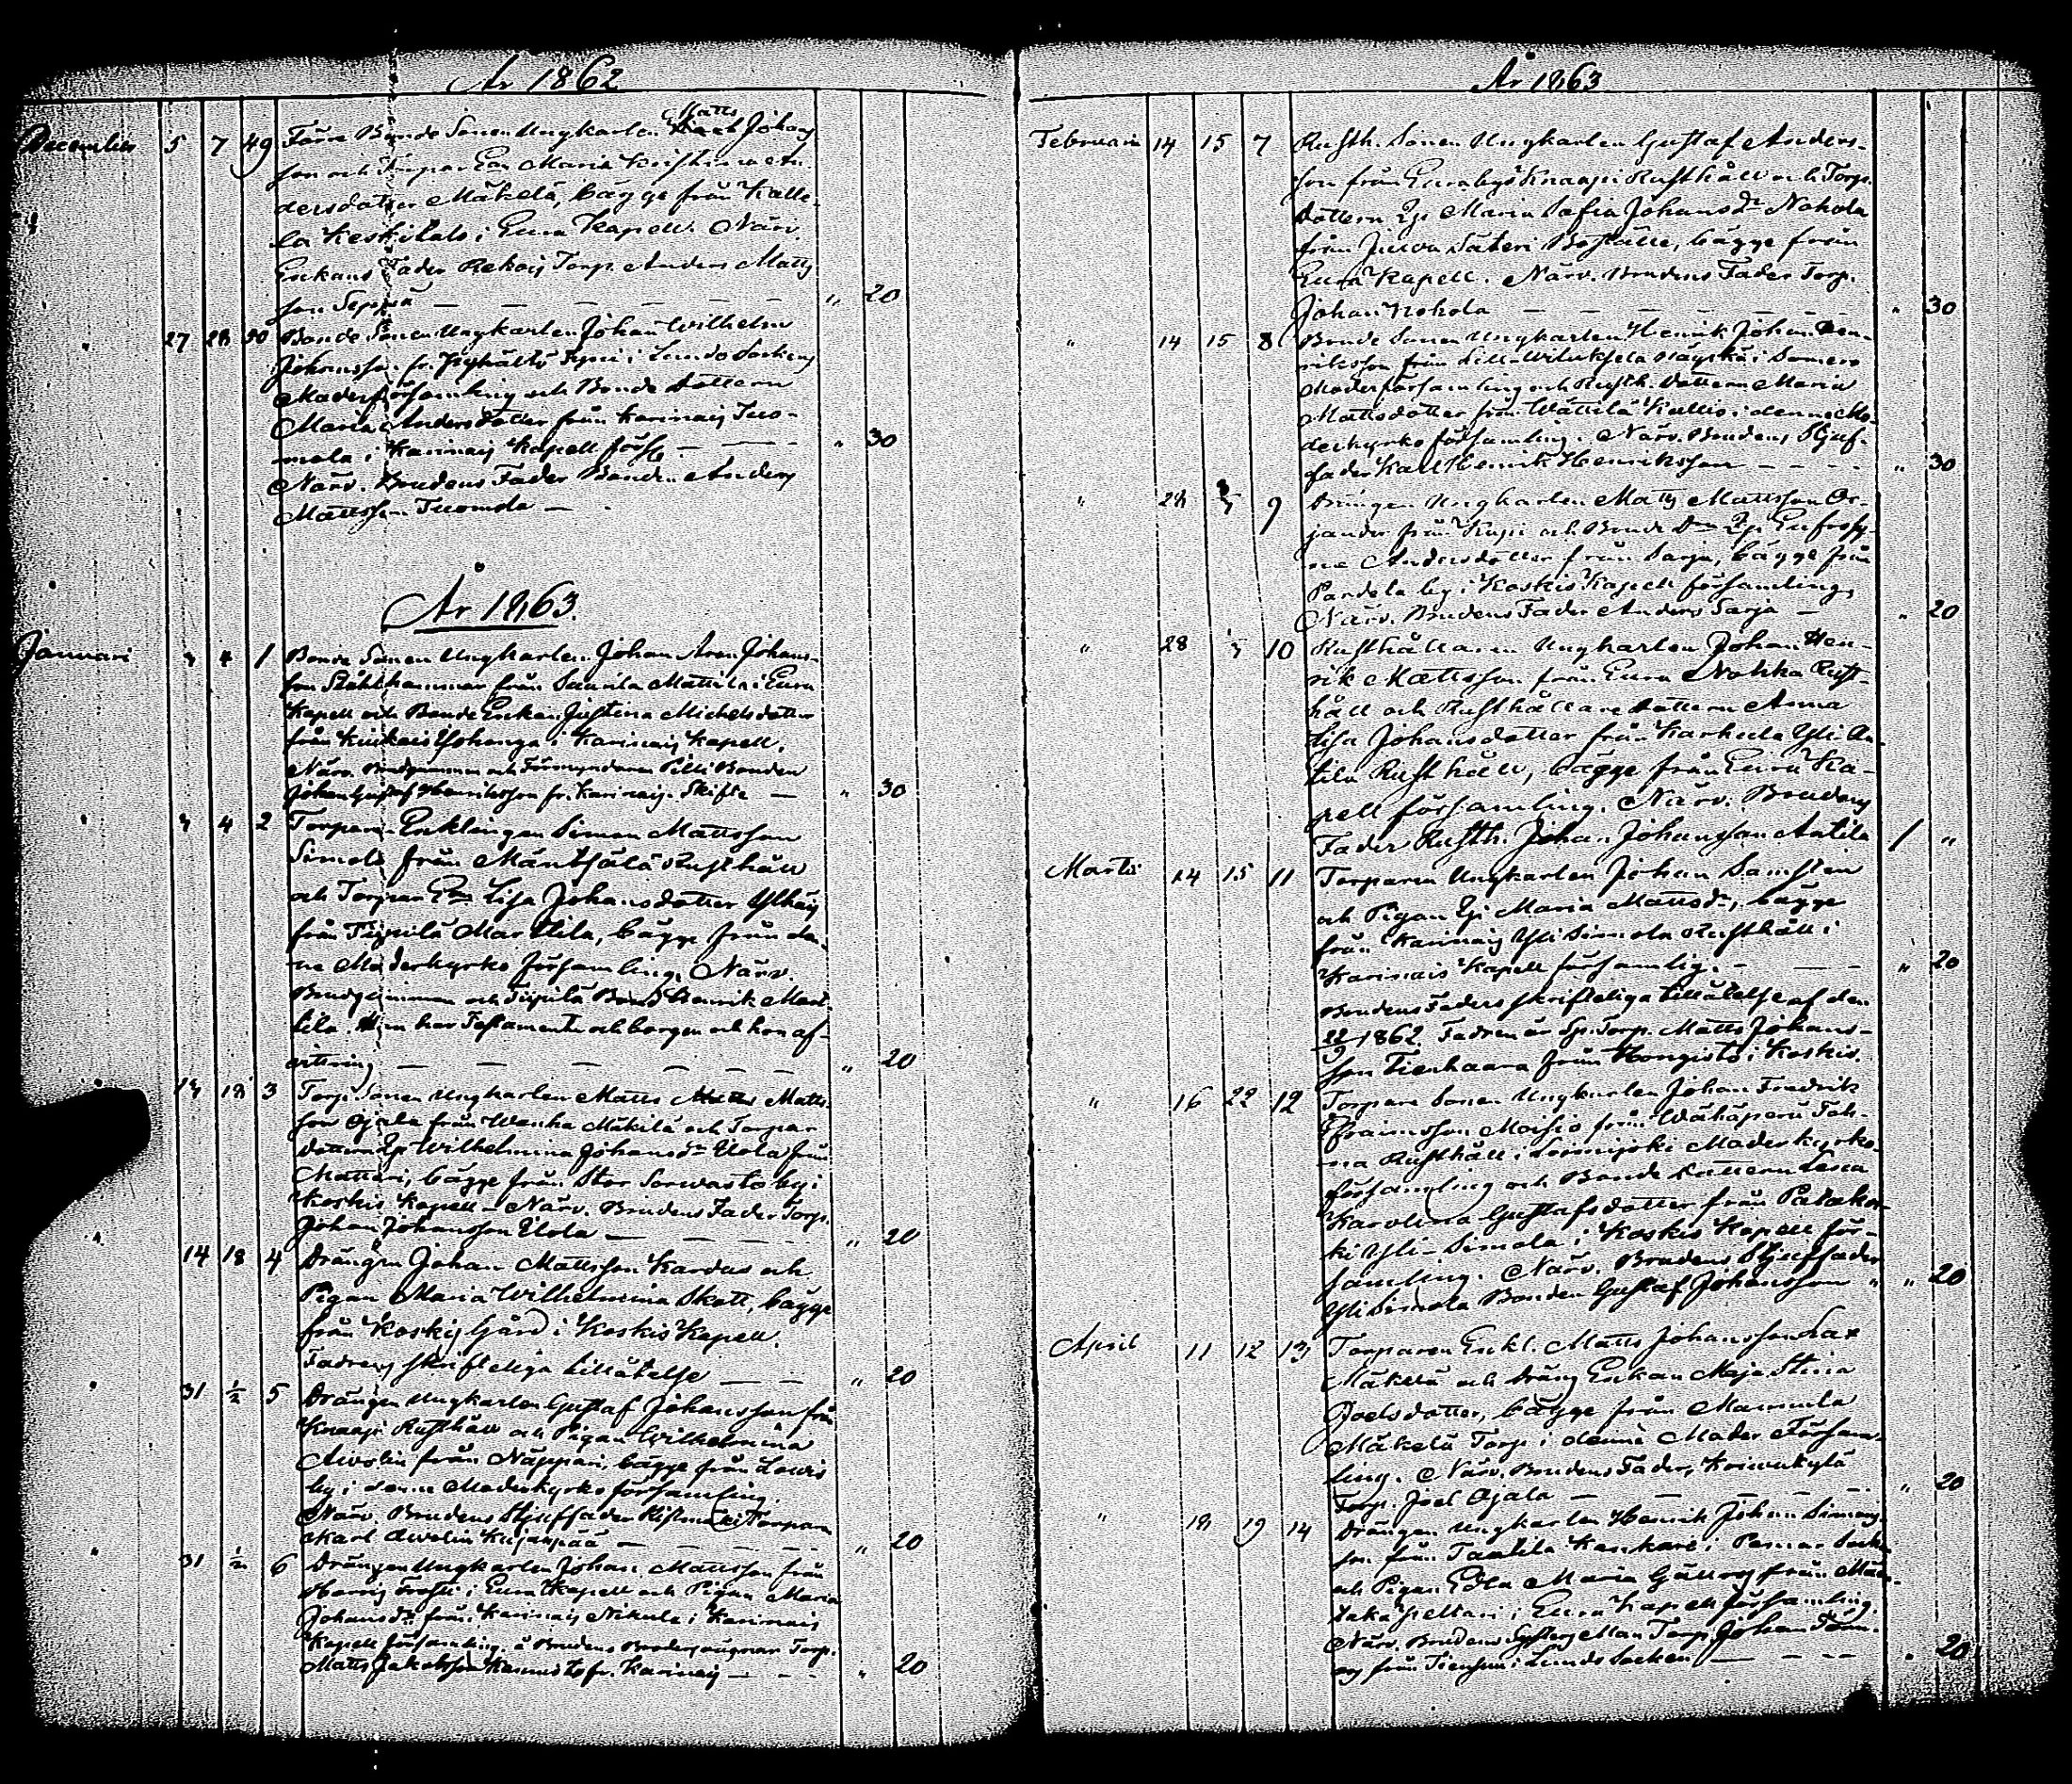 År 1862
December 5 7 49 Förre Bonde Sonen Ungkarlen Matts Johans
son och Torpar Enk. Maria Kristina An
dersdotter Mäkelä, bägge från Kalle-
la Keskitalo i Eura Kapell. Närv.
Enkans Fader Torp. Anders Matts
son Seppä — " 20
" 27 28 50 Bonde Sonen Ungkarlen Johan Wilhelm
Johansson fr. i Lundo Sockens
Moderförsamling och Bonde dottern
Maria Andersdotter från Karinais Tuo-
mola i Karinais Kapell förs. — " 30
Närv. Brudens Fader Bonden Anders
Mattsson Tuomola —
År 1863.
Januari 3 4 1 Bonde Sonen Ungkarlen Johan Johans-
son Stålhammar från Suurila Mattila i Eura
Kapell och Bonde Enkan Justina Michelsdotter
från Yohanga i Karinais Kapell.
Närv. Brudgummen och Förmyndaren Pilli Bonden
Johan Gustaf Henriksson fr. Karinais. Skifte — " 30
" 3 4 2 Torparen Enklingen Simon Mattsson
Simola från Mäntsälä Rusthåll
och Torpar Lisa Johansdotter
från Tiipilä Marttila, bägge från den-
na Moderkyrko församling. Närv.
Brudgummen och Tiipilä Bond. Henrik Mart
tila. Han har Testamente och borgen och hon af-
vittring — " 20
" 17 18 3 Torp. Sonen Ungkarlen Matts Matts-
son Ojala från Wanha Mäkilä och Torpar
dottern Wilhelmina Johansdr Elola från
Matteri, bägge från Stor Sorwasto by i
Koskis Kapell — Närv. Brudens Fader Torp.
Johan Johansson Elola — " 20
" 14 18 4 Drängen Johan Mattsson Kardus och
Pigan Maria Wilhelmina Skott, bägge
från Koskis Gård i Koskis Kapell.
Fadrens skrifteliga tillåtelse — " 20
" 31 1/2 5 Drängen Ungkarlen Gustaf Johansson från
Knaapi Rusthåll och Pigan Wilhelmina
Awolin från Näppari, bägge från Lowis
by i denna Moderkyrko församling.
Närv. Brudens Stjuffader Torparen
Karl Awolin — " 20
" 31 1/2 6 Drängen Ungkarlen Johan Mattsson från
Harris i Eura Kapell och Pigan Maria
Johansdr från Karinais Nikula i Karinais
Kapell församling. Brudens Torp.
Matts Jakobsson fr. Karinais — " 20
År 1863
Februari 14 15 7 Rusth. Sonen Ungkarlen Gustaf Anders-
son från Eura by Knaapi Rusthåll och Torp.
dottern Maria Sofia Johansdr Nokola
från Juwa Säteri Boställe, bägge från
Eura Kapell. Närv. Brudens Fader Torp.
Johan Nokola — " 30
" 14 15 8 Bonde Sonen Ungkarlen Henrik Johan Hen-
riksson från i Somero
Moderförsamling och Rusth. dottern Maria
Mattsdotter från Wättilä Kallio i denna Mo-
derkyrko församling. Närv. Brudens Stjuf-
fader Karl Henrik Henriksson — " 30
" 28 9 Drängen Ungkarlen Matts Mattsson Or-
jander från och Bonde Eufrosy-
ne Andersdotter från Sarja, bägge från
Pardela by i Koskis Kapell församling,
Närv. Brudens Fader Anders Sarja — " 20
" 28 10 Rusthållaren Ungkarlen Johan Hen-
rik Mattsson från Eura Nohka Rust-
håll och Rusthållare dottern Anna
Lisa Johansdotter från Karhula Yli An-
tila Rusthåll, bägge från Eura Ka-
pell församling. Närv. Brudens
Fader Rusth. Johan Johansson Antila 1 "
Martii 14 15 11 Torparen Ungkarlen Johan Samsten
och Pigan Maria Mattsdr, bägge
från Karinais Yli Simola Rusthåll i
Karinais Kapell församling. — " 20
Brudens Faders skrifteliga tillåtelse af den
22/9 1862. Fadren är Sp. Torp. Matts Johans-
son Tienhaara från Hongisto i Koskis.
" 16 22 12 Torpare Sonen Ungkarlen Johan Fredrik
Efraimsson Moisio från Wähäperä
Rusthåll i Loimijoki Moderkyrko-
församling och Bonde dottern Lena
Karolina Gustafsdotter från Patakos-
ki Yli-Simola i Koskis Kapell för-
samling. Närv. Brudens Stjuffader
Yli Simola Bonden Gustaf Johansson " " 20
April 11 12 13 Torparen Enkl. Matts Johansson Lax
Mäkelä och dräng Enkan Maja Stina
Joelsdotter, bägge från Mamula
Mäkelä Torp i denna Moder Försam-
ling. Närv. Brudens Fader,
Torp. Joel Ojala — " 20
" 18 19 14 Drängen Ungkarlen Henrik Johan Simons
son från Taatila Kankare i Pemar Sock.
och Pigan Edla Maria Gällors från
i Eura Kapell församling.
Närv. Brudens Torp. Johan
från i Lundo Socken — " 20